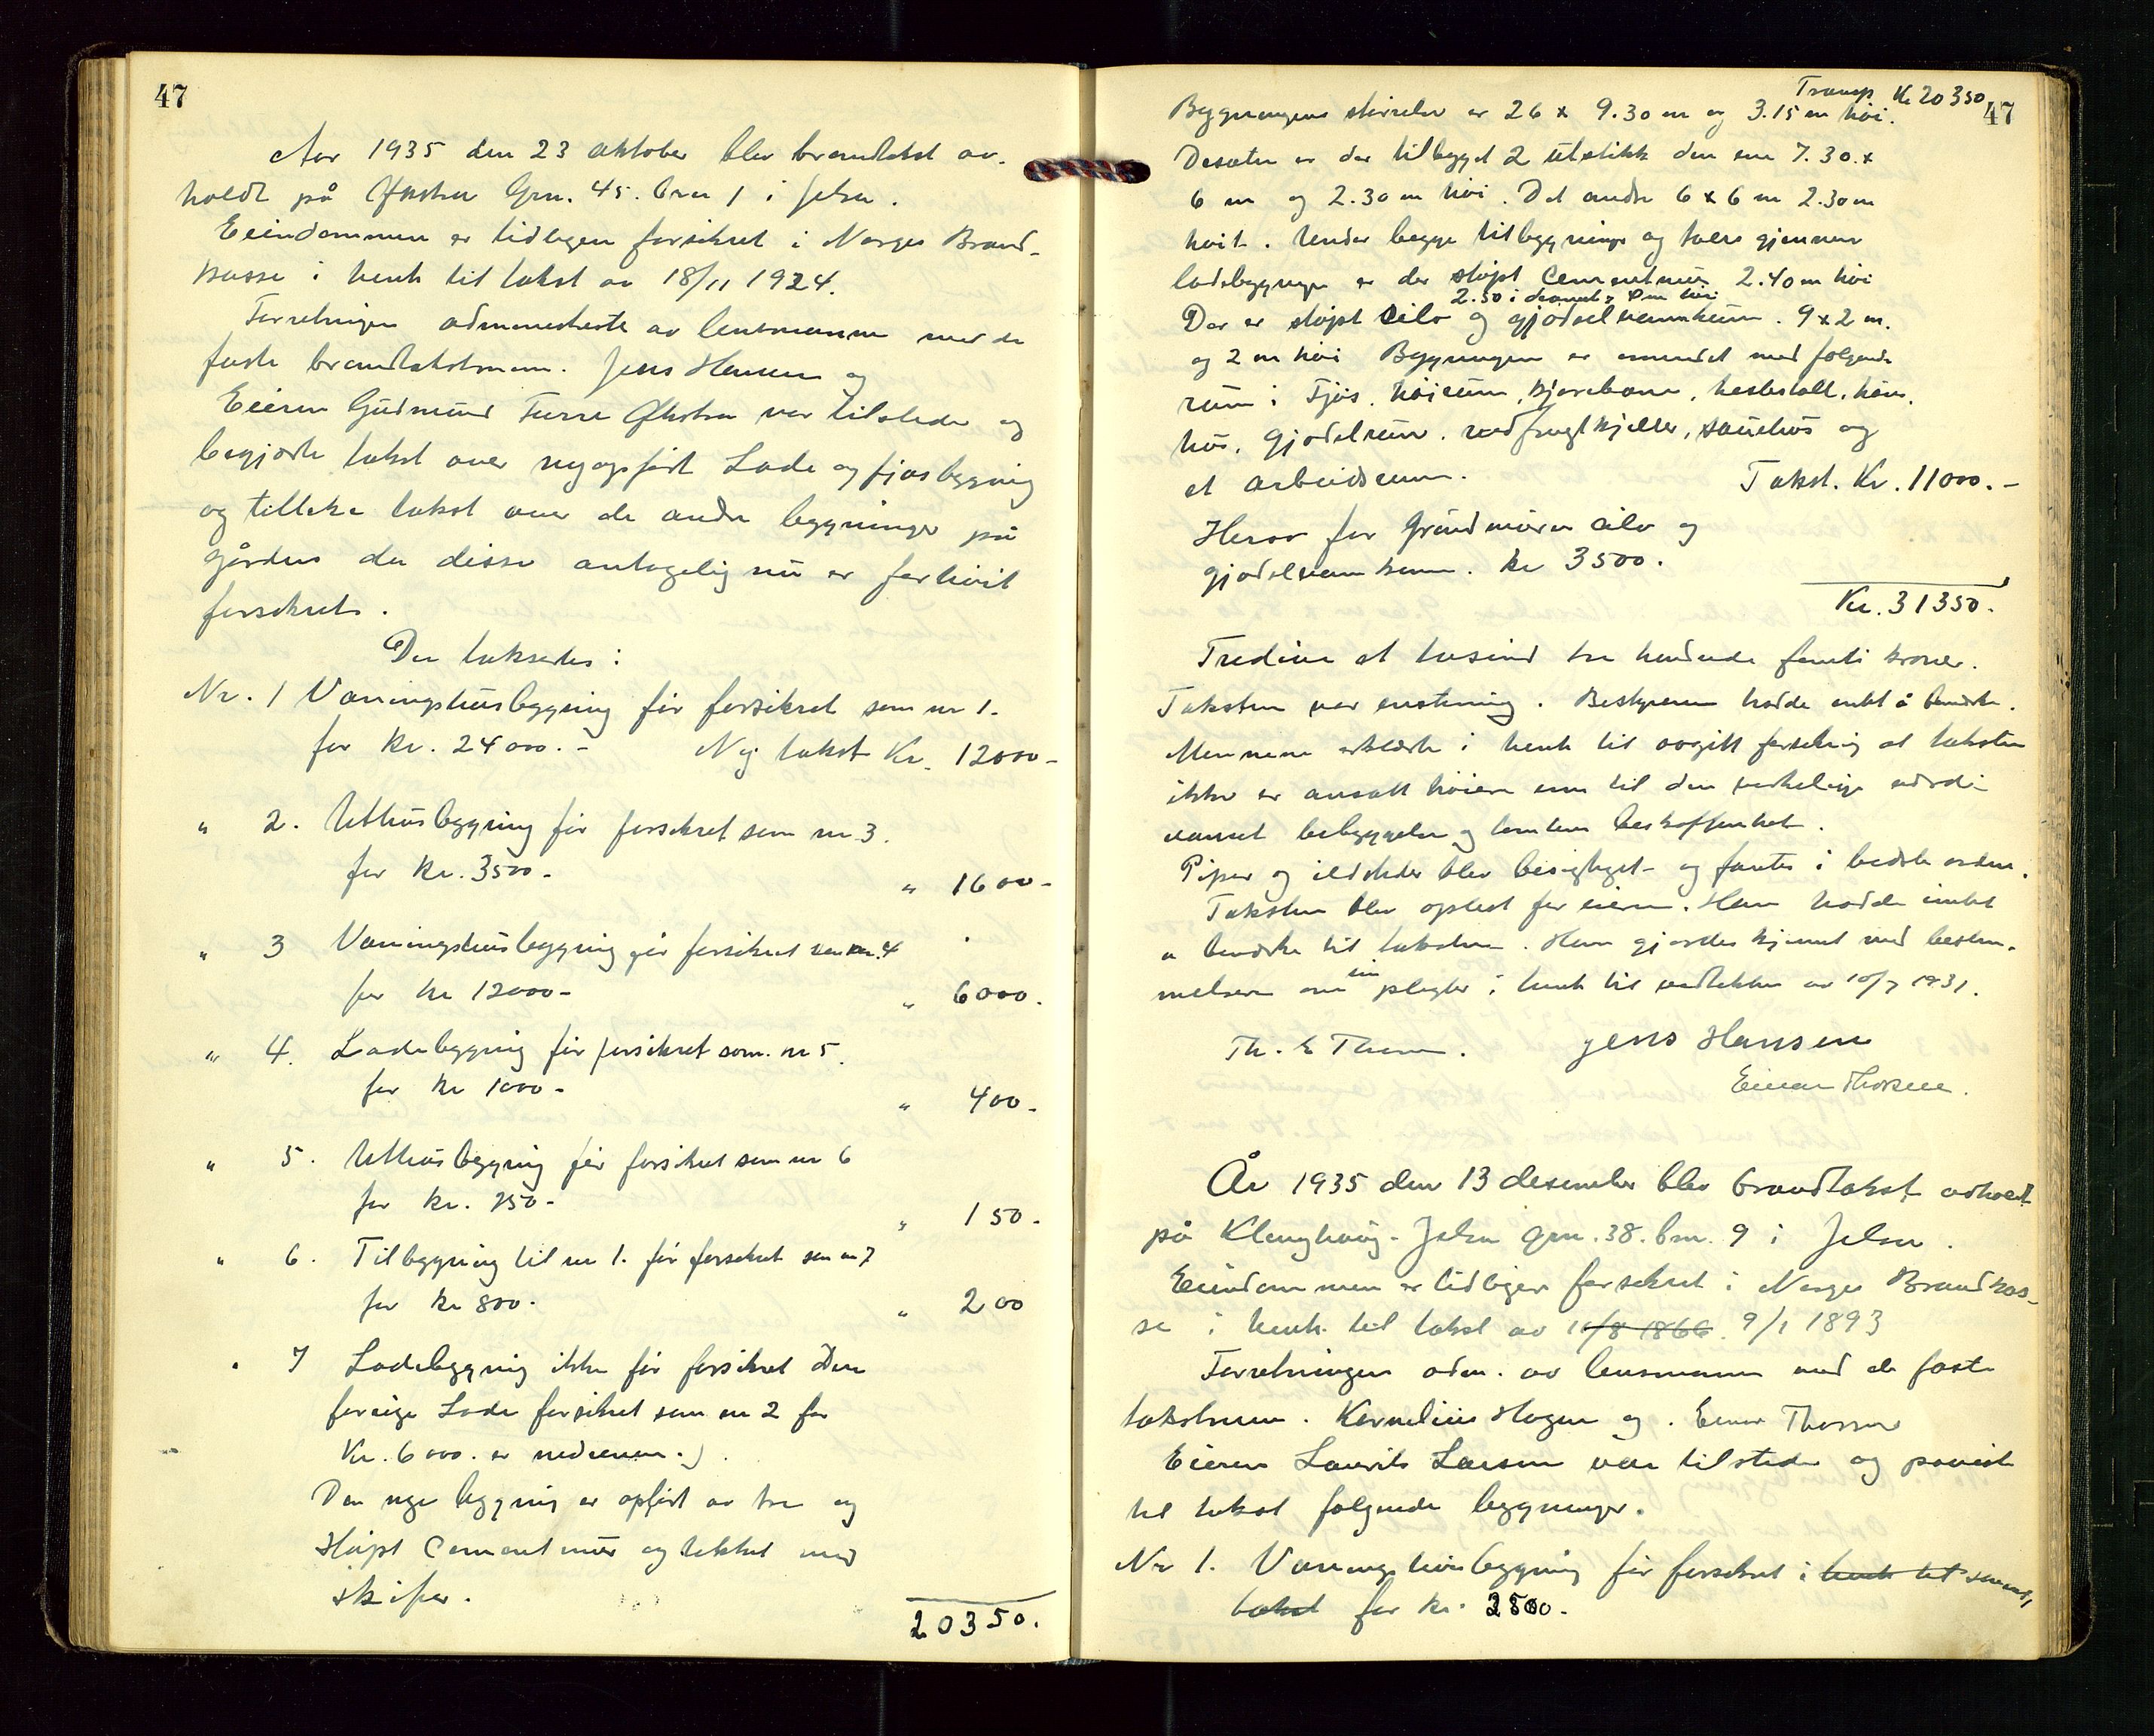 47
Aar 1935 den 23 oktober blev brandtakst av-
holdt på Økstra Grn. 45. brn 1 i Jelsa.
Eiendommen er tidligere forsikret i Norges Brand-
kasse i henh til takst av 18/11 1924.
Forretningen administrerte av lensmannen med de
faste brandtakstmenn. Jens Hansen og
Eieren Gudmund Furre Økstra var tilstede og
begjærte takst over nyopført Lade og fjøsbygning
og tillike takst over de andre bygninger på
gården da disse antagelig nu er for høit
forsikret.
Der takseres:
Nr. 1 Våningshusbygning før forsikret som nr 1.
for kr. 24000.- Ny takst Kr. 12000-
" 2. Uthusbygning før forsikret som nr 3.
for kr. 3500- " 1600-
" 3 Våningshusbygning før forsikret som nr. 4
for kr 12000- " 6000.
" 4. Ladebygning før forsikret som nr 5.
for kr 1000- " 400-
" 5. Uthusbygning før forsikret som nr 6
for kr. 250- " 150-
" 6. Tilbygning til nr 1. før forsikret som nr 7
for kr 800- " 200
" 7 Ladebygning ikke før forsikret Den
forrige Lade forsikret som nr 2 for
Kr. 6000. er nedrevne.)
Den nye bygning er opført av tre og
støpt Cementmur og tekket med
skifer.
20350.
Transp Kr 20350
47
Bygningens størrelse er 26 x 9.30 m og 3.15 m høi.
Desuten er der tilbygget 2 utstikk den ene 7.30 x
6 m og 2.30 m høi. Det andre 6 x 6 m 2.30 m
høit. Under begge tilbygninger og tvers gjennem
ladebygningen er der støpt Cementmur 2.40 m høi
2.50 i diameter høi
Der er støpt silo og gjødselvannkum. 9 x 2 m.
og 2 m høi Bygningen er innredet med følgende
rum i Fjøs, høirum, kjørebane, hestestall, høns-
hus, gjødselrum. vedfrugtkjeller, sauehus og
et arbeidsrum. Takst. Kr. 11000.-
Herav for Grundmuren silo og
gjødselvannkum. kr 3500.
Kr. 31350.
Tredive et tusind tre hundrede femti kroner.
Taksten var enstemig. Bestyreren hadde intet å bemerke.
Mennene erklærte i henh til avgitt forsikring at taksten
ikke er ansatt høiere enn til den verkelige verdi
uanset bebyggelsen og tomtens beskaffenhet.
Piper og ildsteder blev besigtiget og fantes i bedste orden.
Taksten blev oplest for eieren. Han hadde intet
å bemerke til taksten. Han gjordes kjennt med bestem-
melsene om sin plegter i henh til vedtekter av 10/7 1931.
Th. E Thorsen. Jens Hansen
Einar Thorsen.
År 1935 den 13 desember blev brandtakst avholdt
på Klunghaug - Jelsa grn. 38. brn. 9 i Jelsa.
Eiendommen er tidligere forsikret i Norges Brandkas-
se i henh. til takst av 11/8 1866. 9/1 1893
Forretningen adm. av lensmannen med de faste
takstmenn. Kornelius Hagen og. Einar Thorsen
Eieren Laurits Larsen var tilstede og påviste
til takst følgende bygninger.
Nr 1. Våningshusbygning før forsikret i henh til
takst for kr. 2500.-